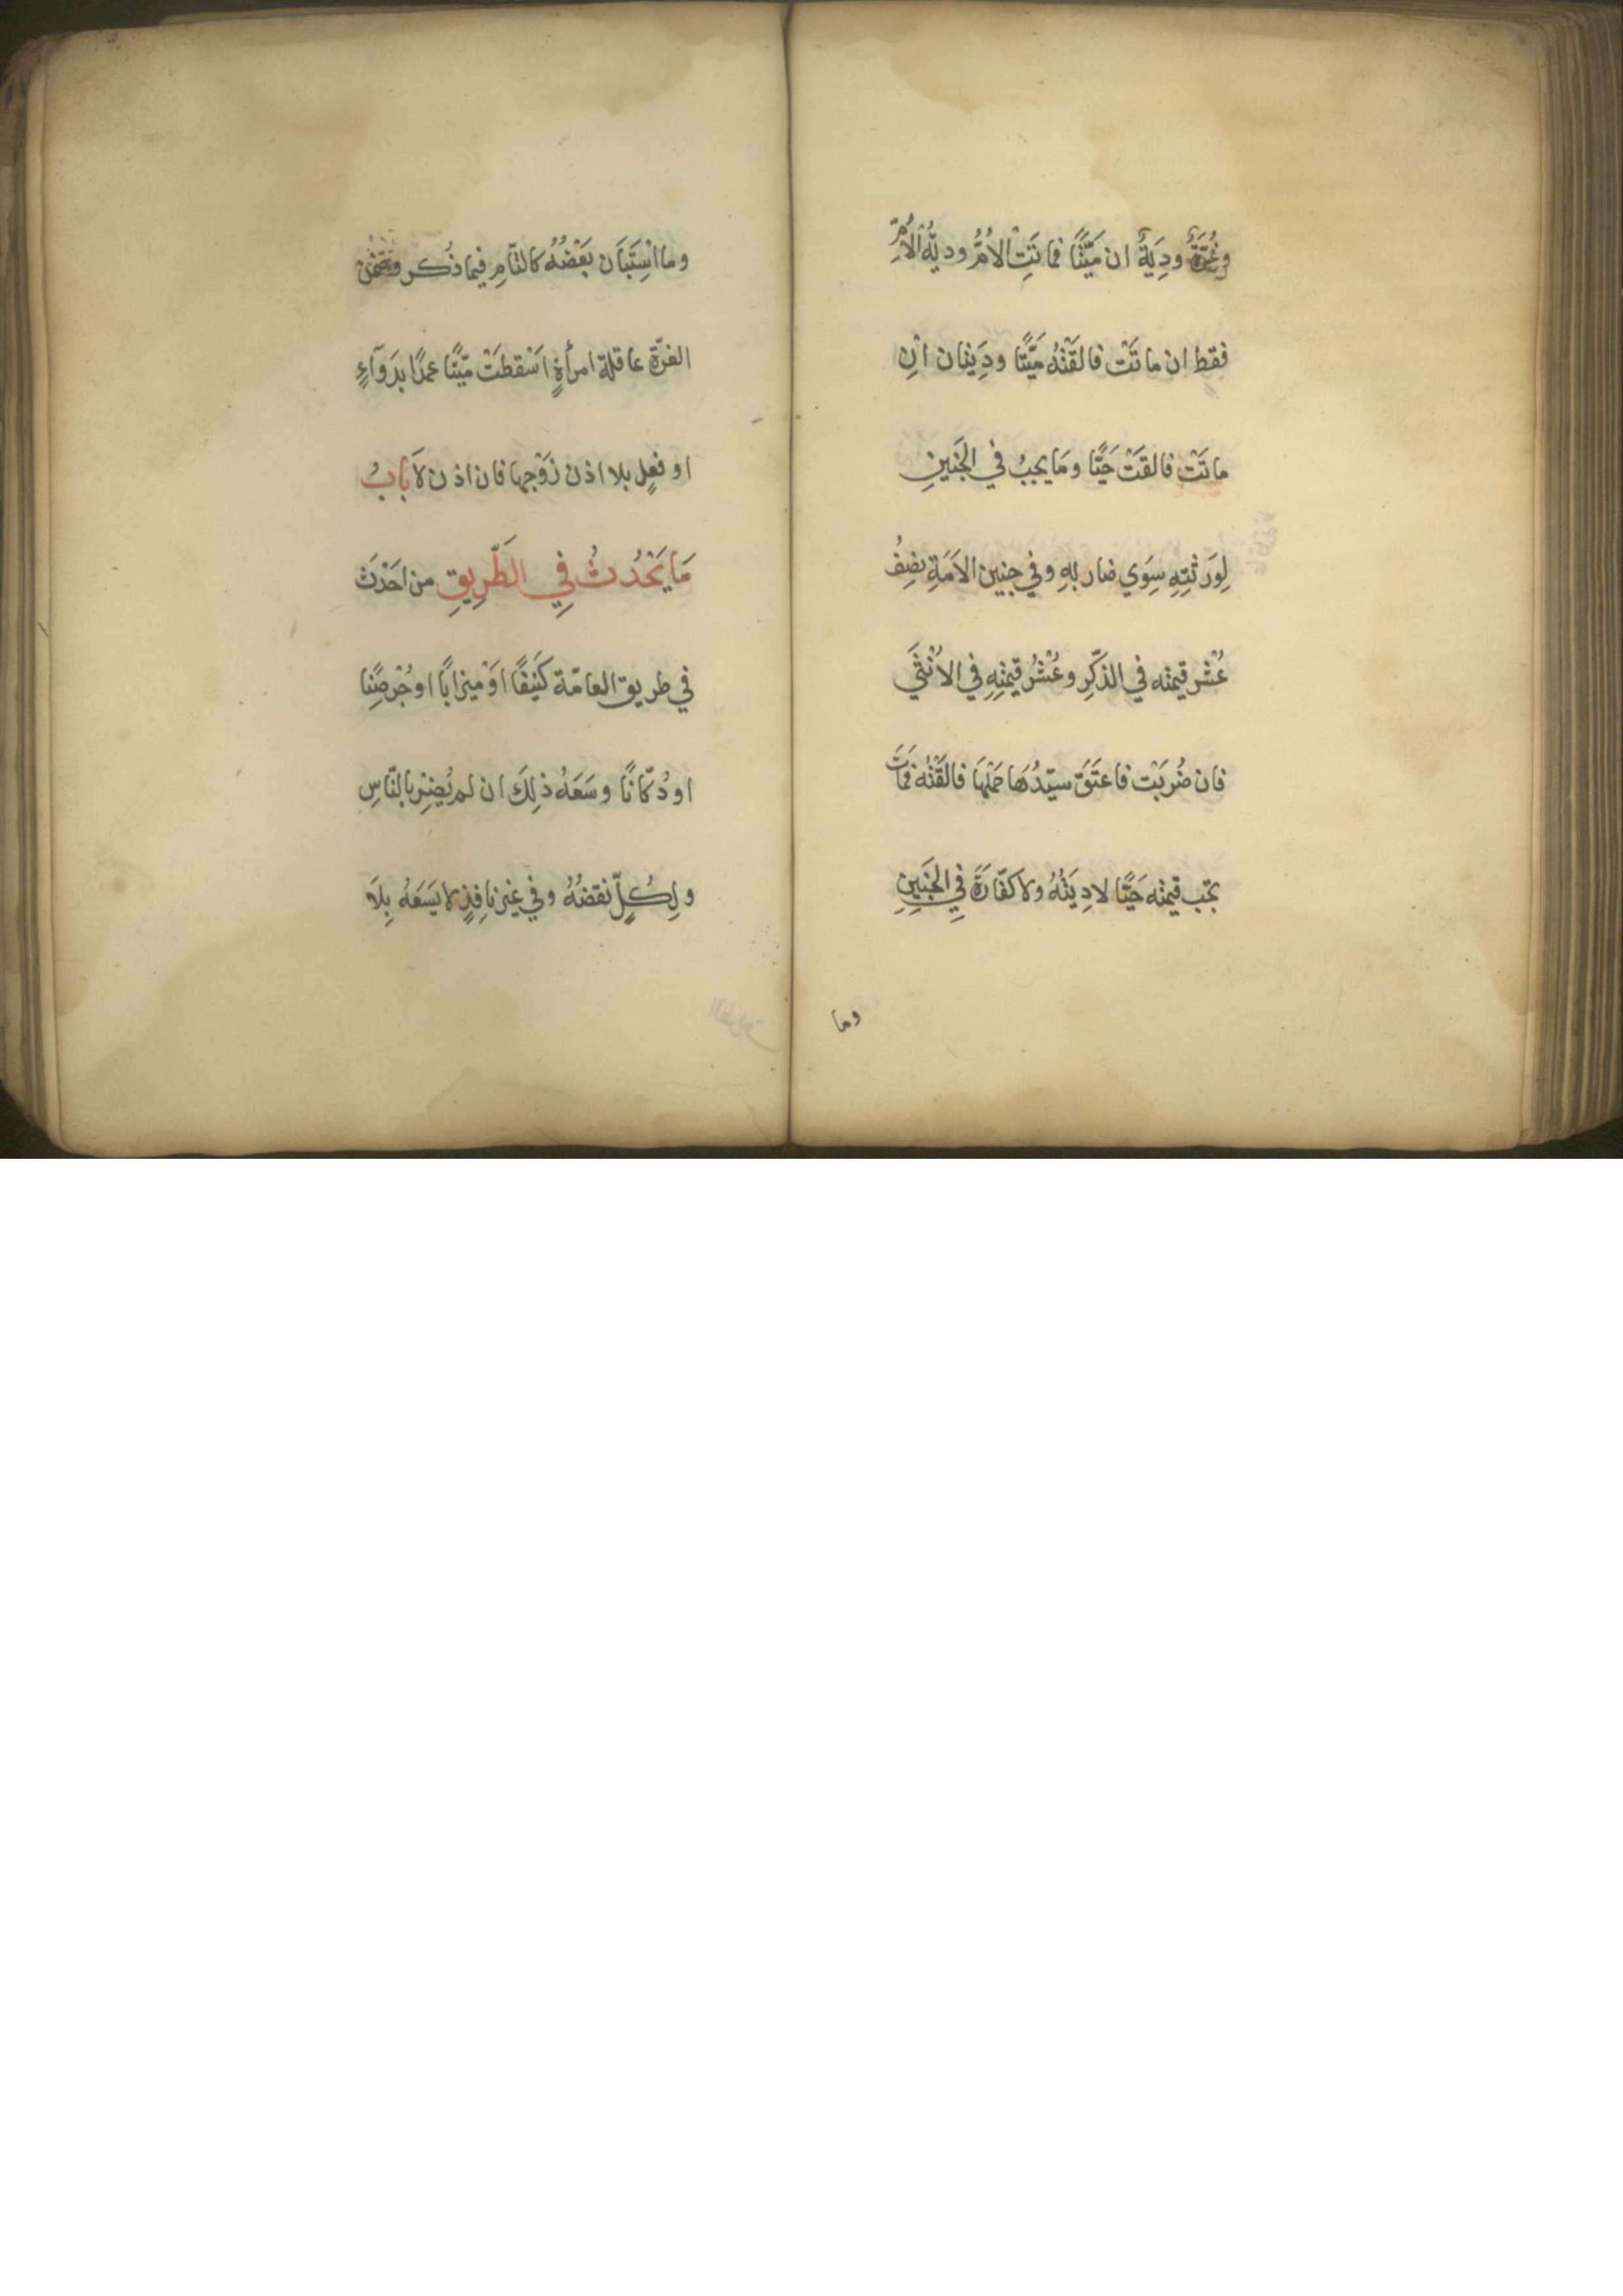 وغُرّةٌ ودِيَةٌ ان مَيّتًا فماتَتِ الامُّ وديةُ الامِّ
فقط ان ماتَتْ فالقَتْهُ مَيّتًا ودِيَتان انِ
ماتَتْ فالقَتْ حَيًّا ومَا يجبُ في الجَنينِ
لِوَرثَتِهِ سِوَي ضاربهِ وفي جنين الاَمَةِ نصِفُ
عُشْر قيمته في الذّكَرِ وعُشْرُ قيمتِهِ في الاُنْثَي
فان ضُرِبَتْ فاعتَقَ سيّدُهَا حَمْلَهَا فالقَتْهُ فمَاتَ
تجب قيمته حَيًّا لا دِيَتُهُ ولا كفّارَةَ فِي الجَنِينِ
وما
وما اسْتَبَان بَعْضُهُ كالتّامِ فيما ذُكر وضمن
الغرّة عاقلة امرأةٍ اَسْقطَتْ ميّتًا عمدًا بدَوآءٍ
او فعلٍ بلا اذن زَوْجها فان اذن لاَ بَابُ
مَا يَحْدُثُ فِي الطَّرِيقِ من احَدْثَ
في طريق العامّة كَنيفًا اَوْ ميزابًا او جُرْصُنا
او دُكّانًا وسَعَهُ ذلِكَ ان لم يُضِرّ بالنّاسِ
ولِكُلٍّ نقضُهُ وفي غير نافِذٍ لا يَسَعَهُ بِلاَ